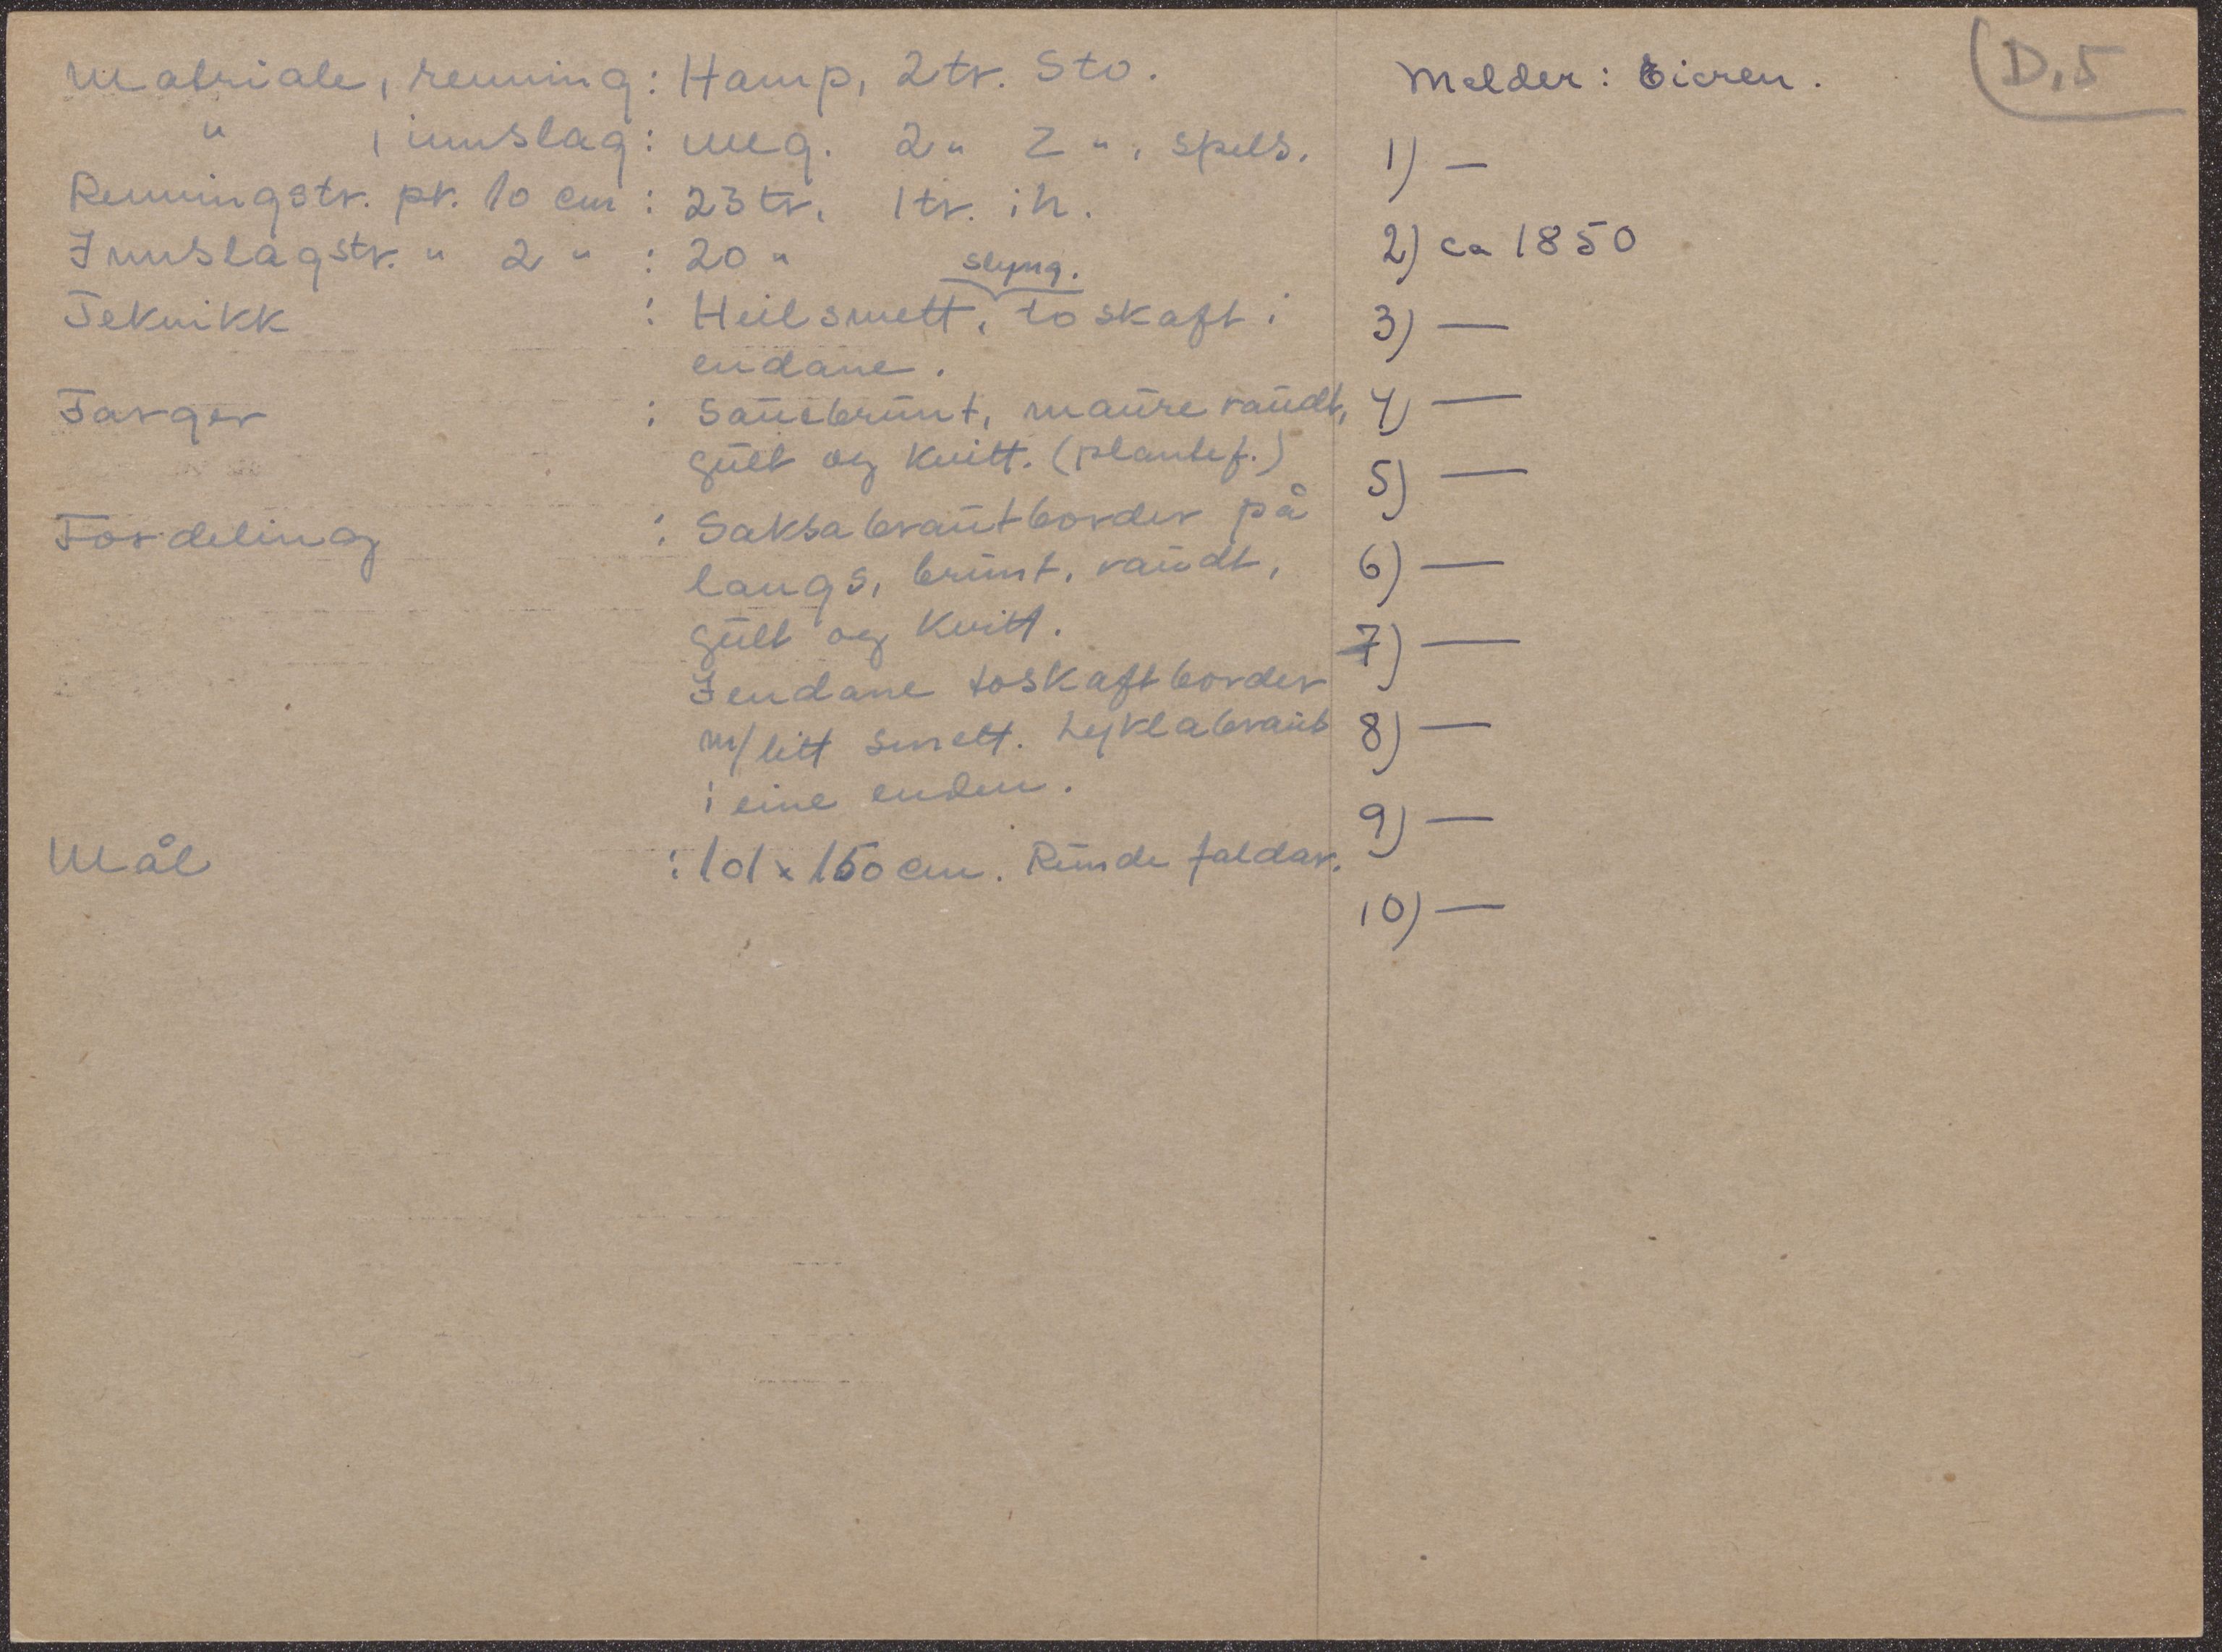 Matriale, renning: Hamp, 2tr. Sto.
" , innslag: ullg. 2 " Z ", spels.
Renningstr. pr. 10 cm : 23 tr. 1 tr. i h.
Innslagstr. " 2 " : 20 "
slyng.
Teknikk : Heilsmett, toskaft i
endane.
Farger : Sauebrunt, maure raudt,
gult og kvitt. (plantef.)
Fordeling : Saksabrautborder på
langs, brunt, raudt,
gult og kvitt.
I endane toskaftborder
m/ litt smett. Lyklabraut
i eine enden.
Mål : 101 x 150 cm. Runde faldar.
Melder: Eieren.
1) —
2) ca 1850
3) —
4) —
5) —
6) —
7) —
8) —
9) —
10) —
D.5